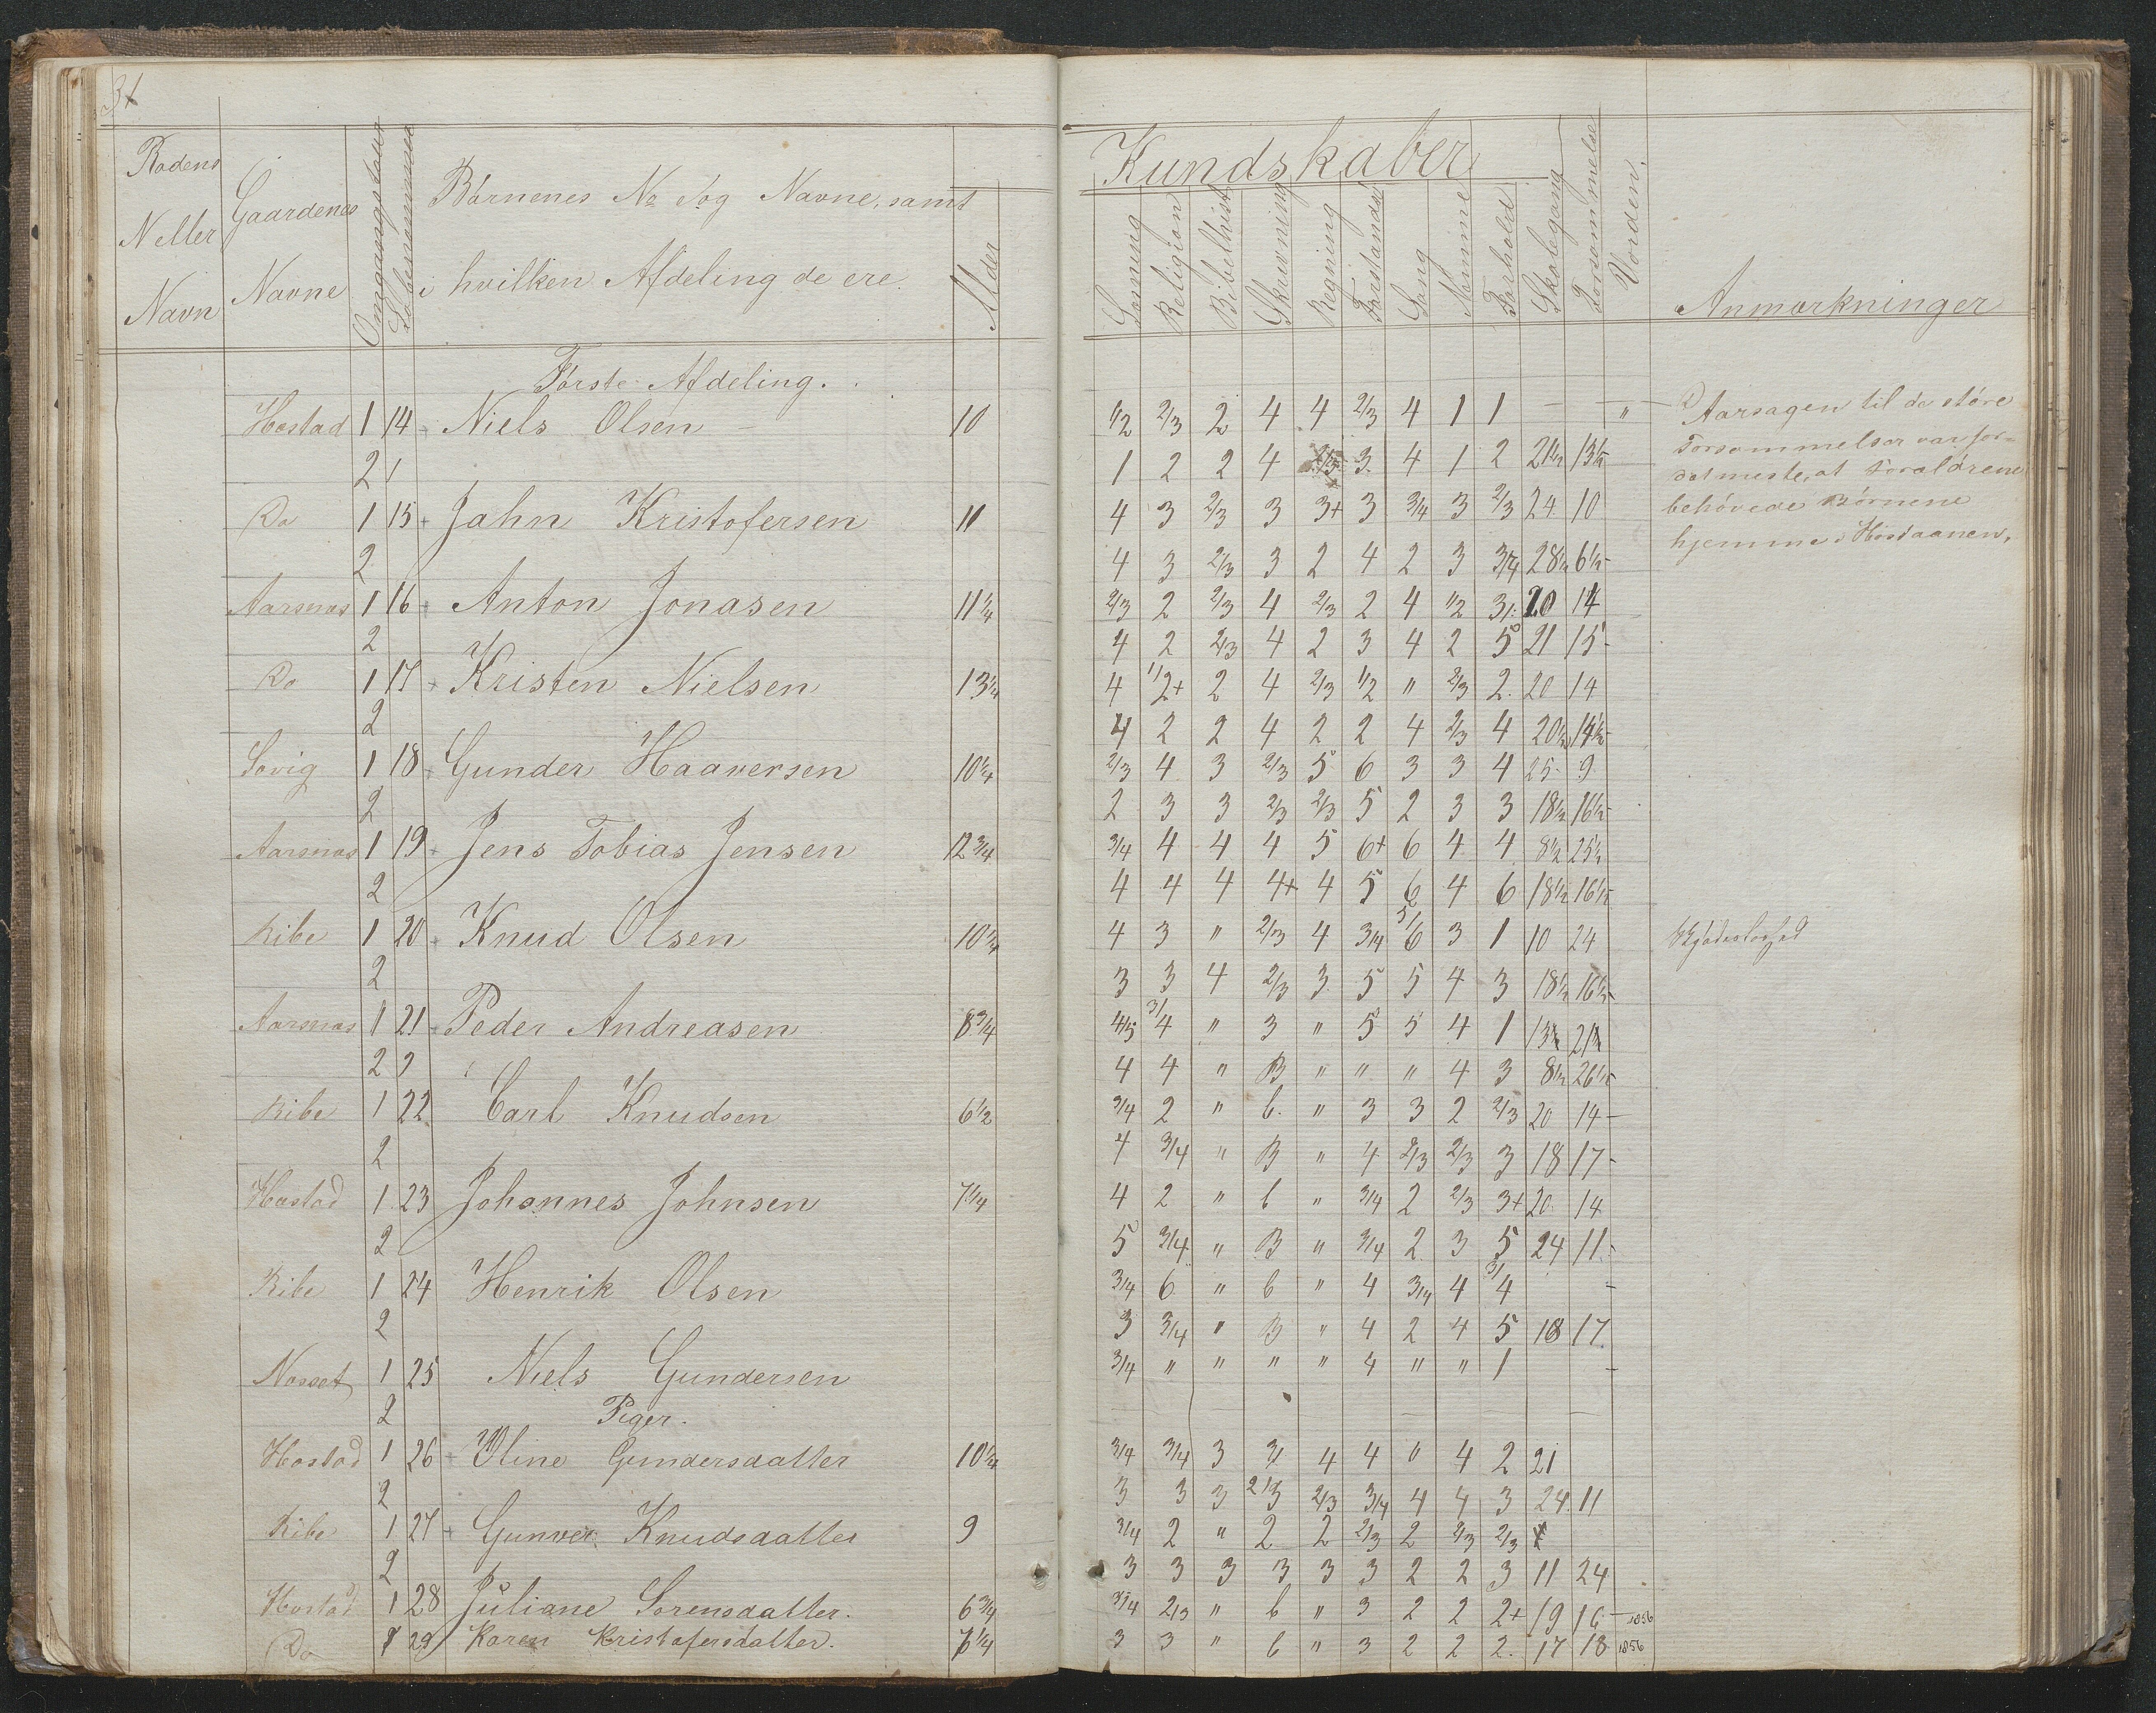 31
Rodens N eller Navn
Gaardenes Navne
Omgangstour
Løbesommer
Børnenes No og Navne, samt i hvilken Afdeling de ere.
Alder
Kundskaber
Religion
Bibelhist
Skrivning
Regning
Forstands
Sang
Nemme
Forhold
Skolegang
Forsømmelse
Verden.
Anmærkninger
Første Afdeling.
Hæstad 1 14 Niels Olsen 10 1/2 2/3 2 4 4 2/3 4 1 1 — — "
2 1 2 2 4 3 4 1 2 21 1/2 13 1/2
Do 1 15 + Jahn Kristofersen 11 4 3 2/3 3 3+ 3 3/4 3 2/3 24 10
2 4 3 2/3 3 2 4 2 3 3/4 28 1/2 6 1/2
Aarsnæs 1 16 + Anton Jonasen 11 1/4 2/3 2 2/3 4 2/3 2 4 1/2 3/ 20 14
2 4 2 2/3 4 2 3 4 2 5 21 15
Do 1 17 + Kristen Nielsen 13 1/4 4 1/2+ 2 4 2/3 1/2 " 2/3 2. 20 14
2 4 2 2 4 2 2 4 2/3 4 20 1/2 14 1/2
Søvig 1 18 + Gunder Haaversen 10 1/4 2/3 4 3 2/3 5 6 3 3 4 25 9
2 2 3 3 2/3 2/3 5 2 3 3 18 1/2 16 1/2
Aarsnæs 1 19 + Jens Tobias Jensen 12 3/4 3/4 4 4 4 5 6+ 6 4 4 8 1/2 25 1/2
2 4 4 4 4+ 4 5 6 4 6 18 1/2 16 1/2
Ribe 1 20 + Knud Olsen 10 1/4 4 3 " 2/3 4 3/4 5/6 3 1 10 24
2 3 3 4 2/3 3 5 5 4 3 18 1/2 16 1/2
Aarsnæs 1 21 + Peder Andreasen 8 3/4 4/5 3/4 " 3 " 5 5 4 1 13 1/2 21 1/2
2 4 4 " B " " " 4 3 8 1/2 26 1/2
Ribe 1 22 Carl Knudsen 6 1/2 3/4 2 " b. " 3 3 2 2/3 20 14
2 4 3/4 " B " 4 2/3 2/3 3 18 17
Hæstad 1 23 Johannes Johnsen 7 1/4 4 2 " b " 3/4 2 2/3 3+ 20 14
2 5 3/4 " B " 3/4 2 3 5 24 11
Ribe 1 24 Henrik Olsen 3/4 6 " b " 4 3/4 4 3/4
2 3 3/4 " B " 4 2 4 5 18 17
Nosset 1 25 Niels Gundersen 3/4 " " " " 4 " " 1
2
Piger.
Hæstad 1 26 + Oline Gundersdatter 10 1/4 3/4 3/4 3 4 4 " 4 2 21
2 3 3 3 2/3 2/3 3/4 4 4 3 24 11
Ribe 1 27 + Gunver Knudsdatter 9 3/4 2 " 2 2 2/3 2 2/3 2/3
2 3 3 3 3 3 3 2 2 3 11 24
Hæstad 1 28 Juliane Sørensdatter. 6 3/4 3/4 2/3 " b " 3 2 2 2+ 19 16 1856
Do 1 29 Karen Kristofersdatter. 7 1/4 3 3 " b " 3 2 2 2. 17 18 1856
Aarsagen til de støre
Forsømmelser var for=
detmeste, at Forældrene
behøvede Børnene
hjemme i Høstaanen,